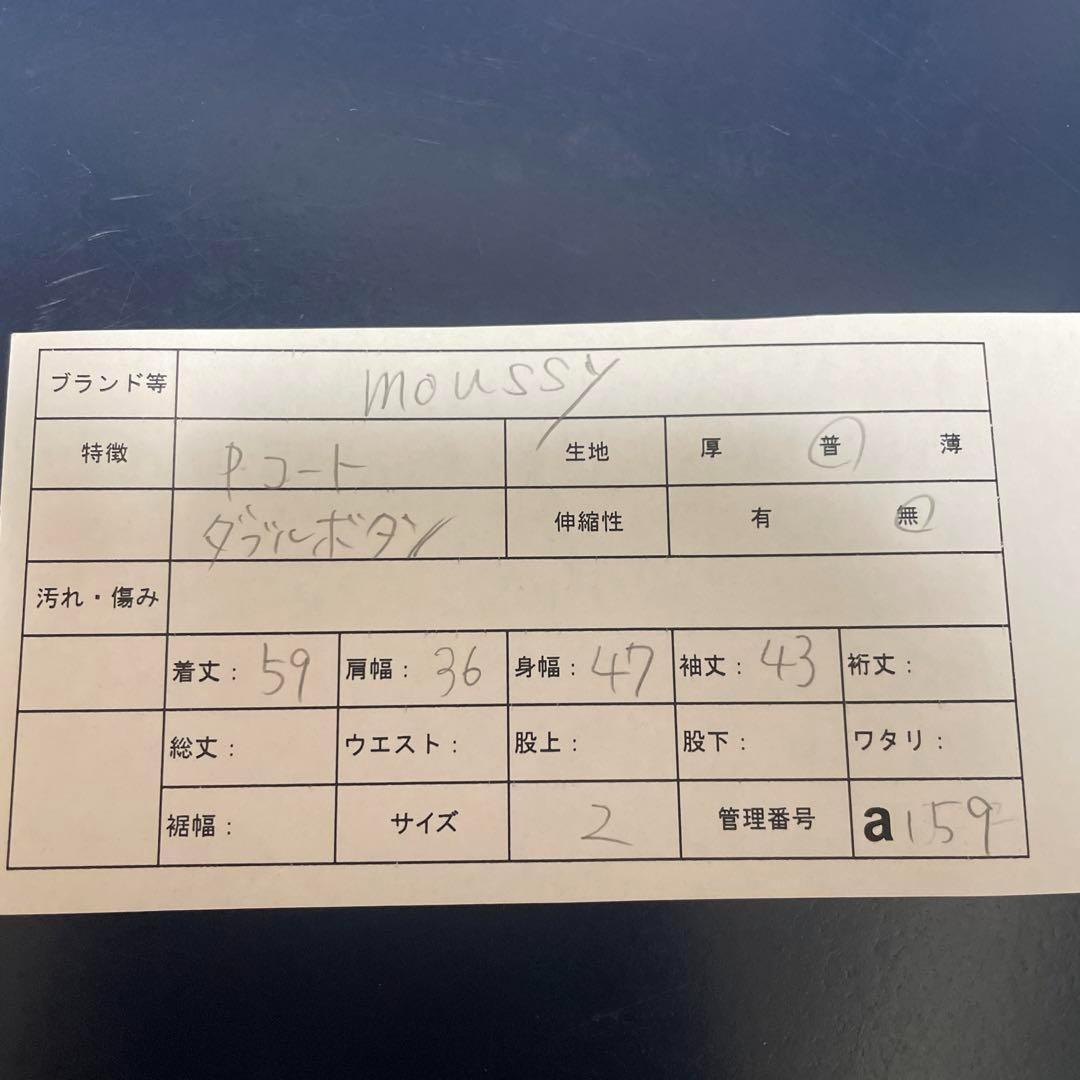 ブランド等 moussy
特徴 Pコート 生地 厚 普 薄
ダブルボタン 伸縮性 有 無
汚れ・傷み
着丈：59 肩幅：36 身幅：47 袖丈：43 裄丈：
総丈： ウエスト： 股上： 股下： ワタリ：
裾幅： サイズ 2 管理番号 a159